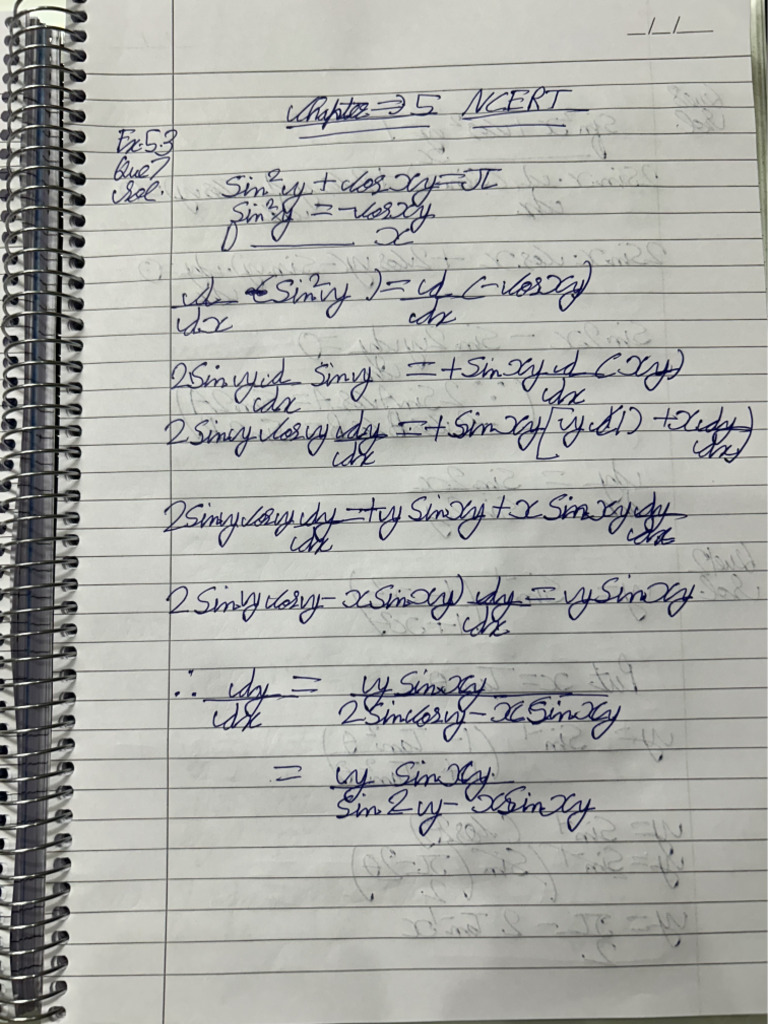 _/_/_
Chapter → 5 NCERT
Ex.5.3
Que 7
Sol. Sin²y + cos xy = π
Sin²y = -cosxy
x
d/dx (Sin²y) = d/dx (-cosxy)
2Siny d/dx Siny = +Sinxy d/dx (xy)
2Siny cosy dy/dx = +Sinxy [y d(1) + x dy/dx)
2Siny cosy dy/dx = +y Sinxy + x Sinxy dy/dx
2Siny cosy - xSinxy) dy/dx = ySinxy
∴ dy/dx = y Sinxy / 2Sincosy - xSinxy
= y Sinxy / Sin2y - xSinxy